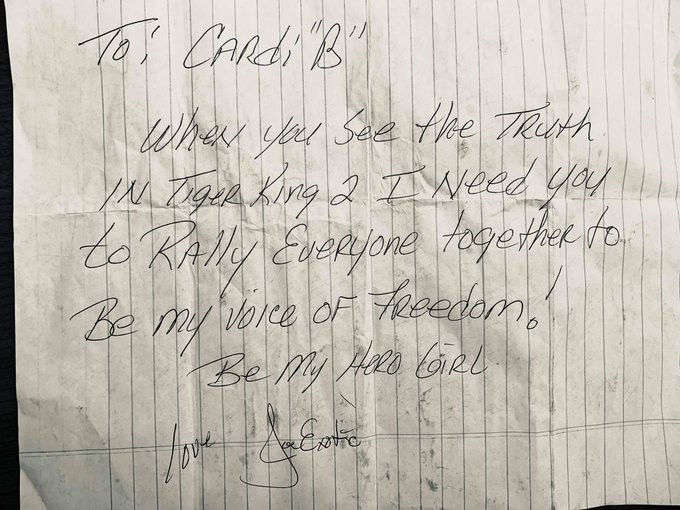 To: CARdi "B"
When you See the TRuth
IN Tiger King 2 I Need you
to RAlly EveRyone together to
Be my voice of Freedom.!
Be My HeRo GiRL
love Joe Exotic